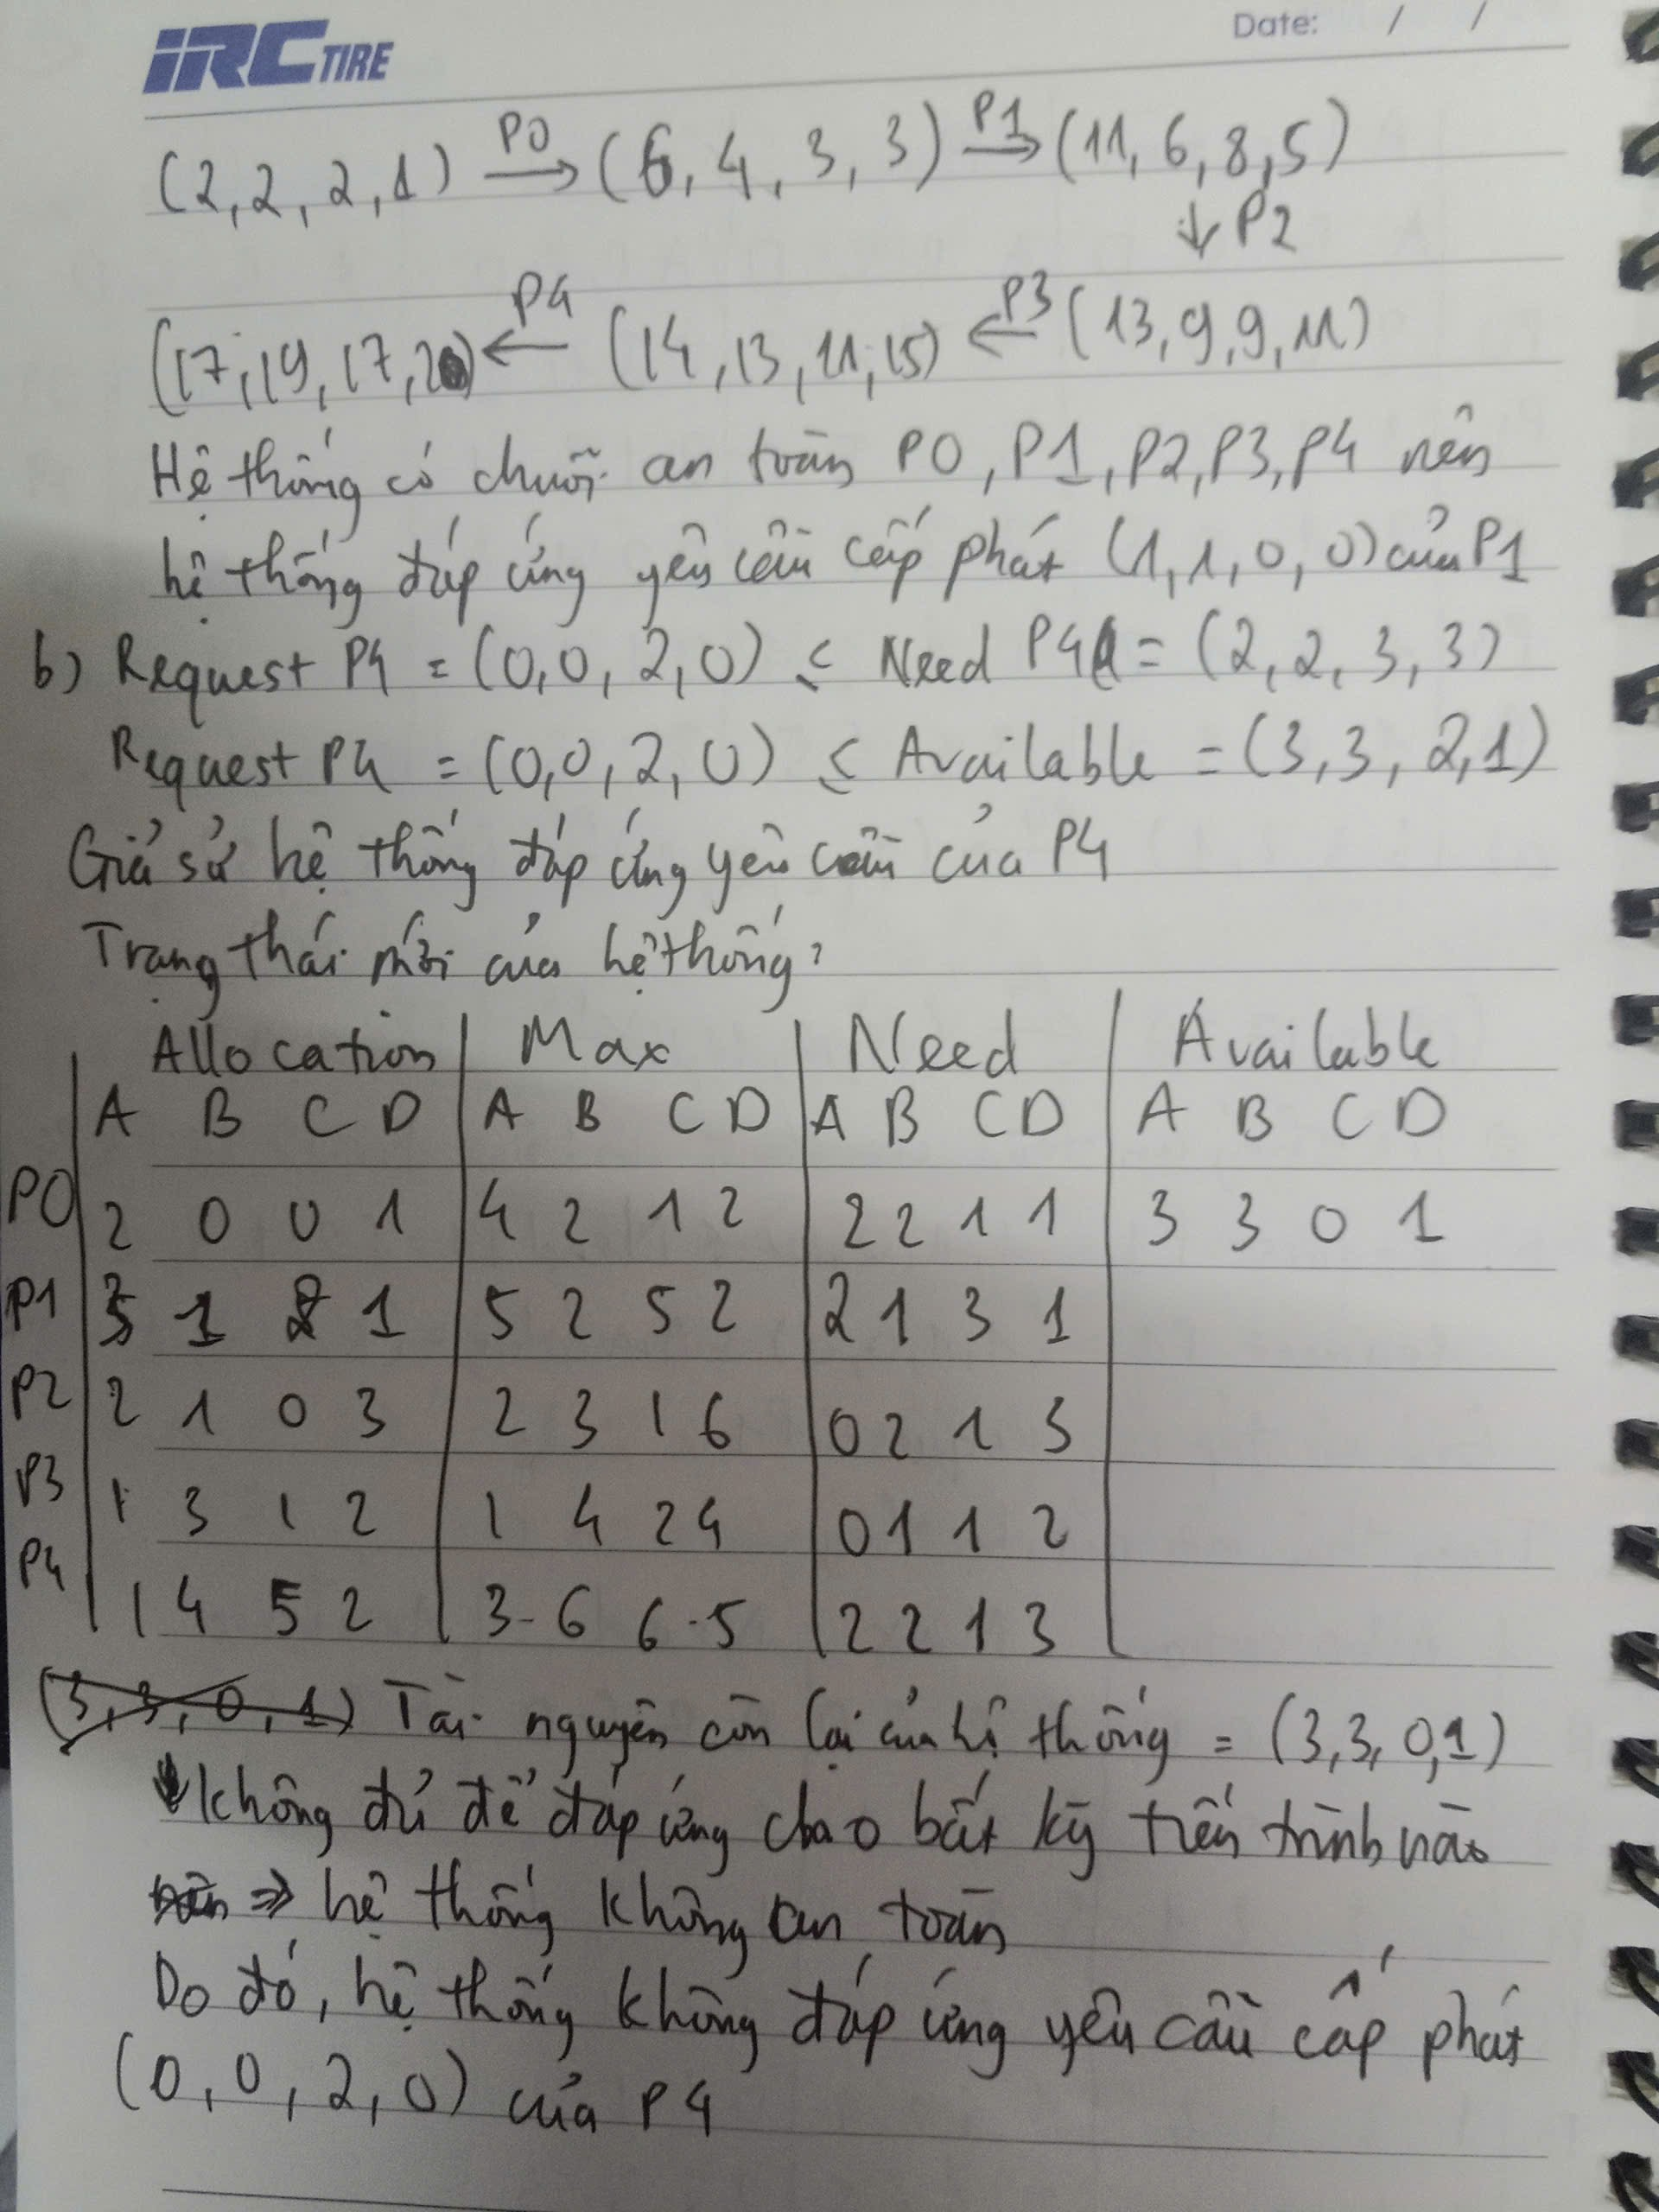 iRC TIRE
Date: / /
(2,2,2,1) P0→ (6,4,3,3) P1→ (11,6,8,5)
↓ P2
(17,19,17,20) ←P4 (14,13,11,15) ←P3 (13,9,9,11)
Hệ thống có chuỗi an toàn P0,P1,P2,P3,P4 nên
hệ thống đáp ứng yêu cầu cấp phát (1,1,0,0) của P1
b) Request P4 = (0,0,2,0) ≤ Need P4 = (2,2,3,3)
Request P4 = (0,0,2,0) ≤ Available = (3,3,2,1)
Giả sử hệ thống đáp ứng yêu cầu của P4
Trạng thái mới của hệ thống:
Allocation Max Need Available
A B C D A B C D A B C D A B C D
P0 2 0 0 1 4 2 1 2 2 2 1 1 3 3 0 1
P1 3 1 2 1 5 2 5 2 2 1 3 1
P2 2 1 0 3 2 3 1 6 0 2 1 3
P3 1 3 1 2 1 4 2 4 0 1 1 2
P4 1 4 5 2 3 6 6 5 2 2 1 3
(3,3,0,1) Tài nguyên còn lại của hệ thống = (3,3,0,1)
không đủ để đáp ứng cho bất kỳ tiến trình nào
⇒ hệ thống không an toàn
Do đó, hệ thống không đáp ứng yêu cầu cấp phát
(0,0,2,0) của P4